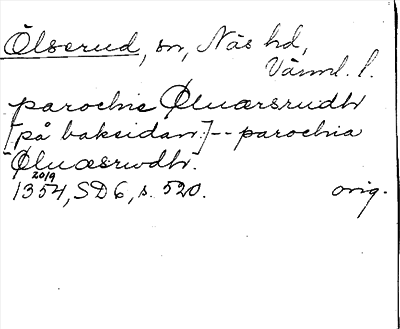 Ölserud, sn, Näs hd,
Värml. l.
parochie Øluærsrudh
[på baksidan:]-- parochia
Øluæsrudh.
1354 20/9, SD 6, s. 520. orig.